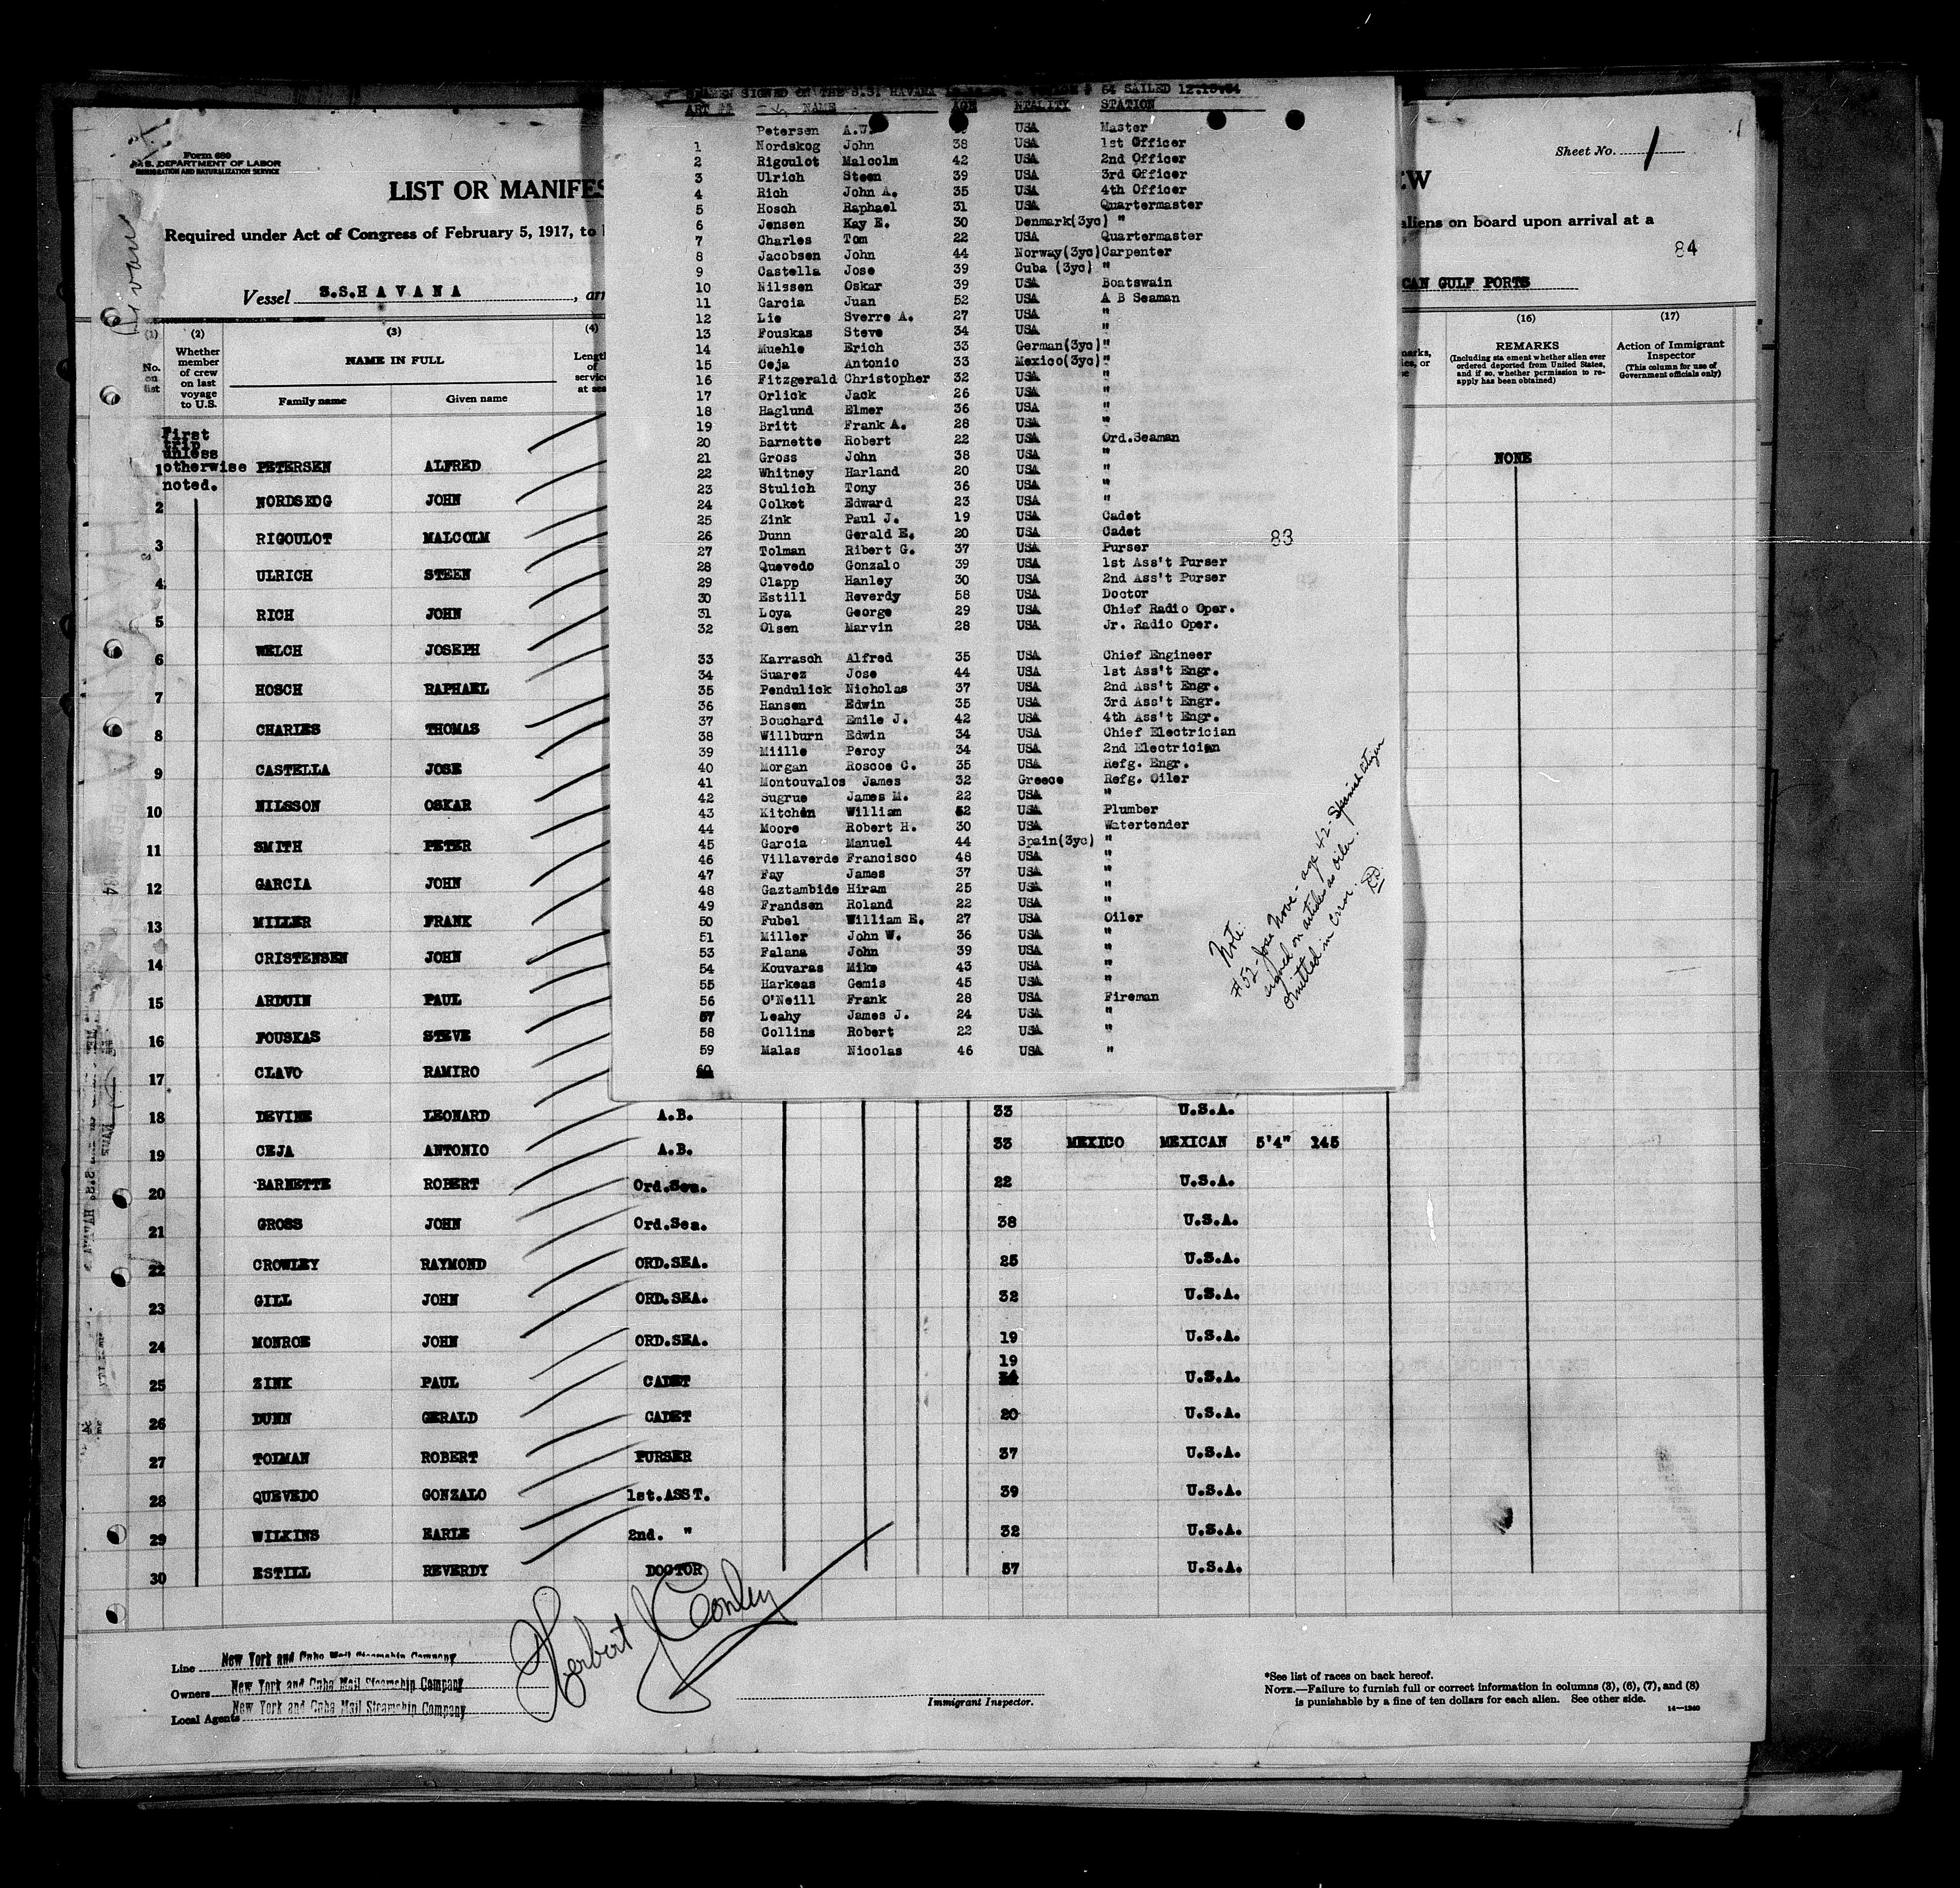 SEAMEN SIGNED ON THE S.S. HAVANA # 64 SAILED 12.15.34
ART ## NAME AGE NTALITY STATION
Petersen A.W. USA Master
1 Nordskog John 38 USA 1st Officer
2 Rigoulot Malcolm 42 USA 2nd Officer
3 Ulrich Steen 39 USA 3rd Officer
4 Rich John A. 35 USA 4th Officer
5 Hosch Raphael 31 USA Quartermaster
6 Jensen Kay E. 30 Denmark(3yc) "
7 Charles Tom 22 USA Quartermaster
8 Jacobsen John 44 Norway(3yc) Carpenter
9 Castella Jose 39 Cuba (3yc) "
10 Nilssen Oskar 39 USA Boatswain
11 Garcia Juan 52 USA A B Seaman
12 Lie Sverre A. 27 USA "
13 Fouskas Steve 34 USA "
14 Muehle Erich 33 German(3yc) "
15 Ceja Antonio 33 Mexico(3yc) "
16 Fitzgerald Christopher 32 USA "
17 Orlick Jack 26 USA "
18 Haglund Elmer 36 USA "
19 Britt Frank A. 28 USA "
20 Barnette Robert 22 USA Ord.Seaman
21 Gross John 38 USA "
22 Whitney Harland 20 USA "
23 Stulich Tony 36 USA "
24 Colket Edward 23 USA "
25 Zink Paul J. 19 USA Cadet
26 Dunn Gerald E. 20 USA Cadet
83
27 Tolman Ribert G. 37 USA Purser
28 Quevedo Gonzalo 39 USA 1st Ass't Purser
29 Clapp Hanley 30 USA 2nd Ass't Purser
30 Estill Reverdy 58 USA Doctor
31 Loya George 29 USA Chief Radio Oper.
32 Olsen Marvin 28 USA Jr. Radio Oper.
33 Karrasch Alfred 35 USA Chief Engineer
34 Suarez Jose 44 USA 1st Ass't Engr.
35 Pendulick Nicholas 37 USA 2nd Ass't Engr.
36 Hansen Edwin 35 USA 3rd Ass't Engr.
37 Bouchard Emile J. 42 USA 4th Ass't Engr.
38 Willburn Edwin 34 USA Chief Electrician
39 Miille Percy 34 USA 2nd Electrician
40 Morgan Roscoe C. 35 USA Refg. Engr.
41 Montouvalos James 32 Greece Refg. Oiler
42 Sugrue James M. 22 USA "
43 Kitchen William 52 USA Plumber
44 Moore Robert H. 30 USA Watertender
45 Garcia Manuel 44 Spain(3yc) "
46 Villaverde Francisco 48 USA "
47 Fay James 37 USA "
48 Gaztambide Hiram 25 USA "
49 Frandsen Roland 22 USA "
50 Fubel William E. 27 USA Oiler
51 Miller John W. 36 USA "
53 Falana John 39 USA "
54 Kouvaras Mike 43 USA "
55 Harkeas Gemis 45 USA "
56 O'Neill Frank 28 USA Fireman
57 Leahy James J. 24 USA "
58 Collins Robert 22 USA "
59 Malas Nicolas 46 USA "
60
Note:
#52 - Jose Nove - age 42 - Spanish citizen
signed on articles as oiler.
Omitted in error.
Form 680
U.S. DEPARTMENT OF LABOR
IMMIGRATION AND NATURALIZATION SERVICE
Sheet No. 1
LIST OR MANIFES
EW
Required under Act of Congress of February 5, 1917, to
aliens on board upon arrival at a
84
Vessel S.S.HAVANA , arr
CAN GULF PORTS
(2) (3) (4) (16) (17)
No. on list
Whether member of crew on last voyage to U.S.
NAME IN FULL
Family name Given name
Length of service at sea
REMARKS
(Including statement whether alien ever ordered deported from United States, and if so, whether permission to reapply has been obtained)
Action of Immigrant Inspector
(This column for use of Government officials only)
First trip unless otherwise noted.
1 PETERSEN ALFRED NONE
2 NORDSKOG JOHN
3 RIGOULOT MALCOLM
4 ULRICH STEEN
5 RICH JOHN
6 WELCH JOSEPH
7 HOSCH RAPHAEL
8 CHARLES THOMAS
9 CASTELLA JOSE
10 NILSSON OSKAR
11 SMITH PETER
12 GARCIA JOHN
13 MILLER FRANK
14 CRISTENSEN JOHN
15 ARDUIN PAUL
16 FOUSKAS STEVE
17 CLAVO RAMIRO
18 DEVINE LEONARD A.B. 33 U.S.A.
19 CEJA ANTONIO A.B. 33 MEXICO MEXICAN 5'4" 145
20 BARNETTE ROBERT Ord.Sea. 22 U.S.A.
21 GROSS JOHN Ord.Sea. 38 U.S.A.
22 CROWLEY RAYMOND ORD.SEA. 25 U.S.A.
23 GILL JOHN ORD.SEA. 32 U.S.A.
24 MONROE JOHN ORD.SEA. 19 U.S.A.
25 ZINK PAUL CADET 19 U.S.A.
26 DUNN GERALD CADET 20 U.S.A.
27 TOLMAN ROBERT PURSER 37 U.S.A.
28 QUEVEDO GONZALO 1st.ASST. 39 U.S.A.
29 WILKINS EARLE 2nd. " 32 U.S.A.
30 ESTILL REVERDY DOCTOR 57 U.S.A.
Herbert J Conley
Line New York and Cuba Mail Steamship Company
Owners New York and Cuba Mail Steamship Company
Local Agents New York and Cuba Mail Steamship Company
Immigrant Inspector.
*See list of races on back hereof.
NOTE.—Failure to furnish full or correct information in columns (3), (6), (7), and (8)
is punishable by a fine of ten dollars for each alien. See other side.
14—1240